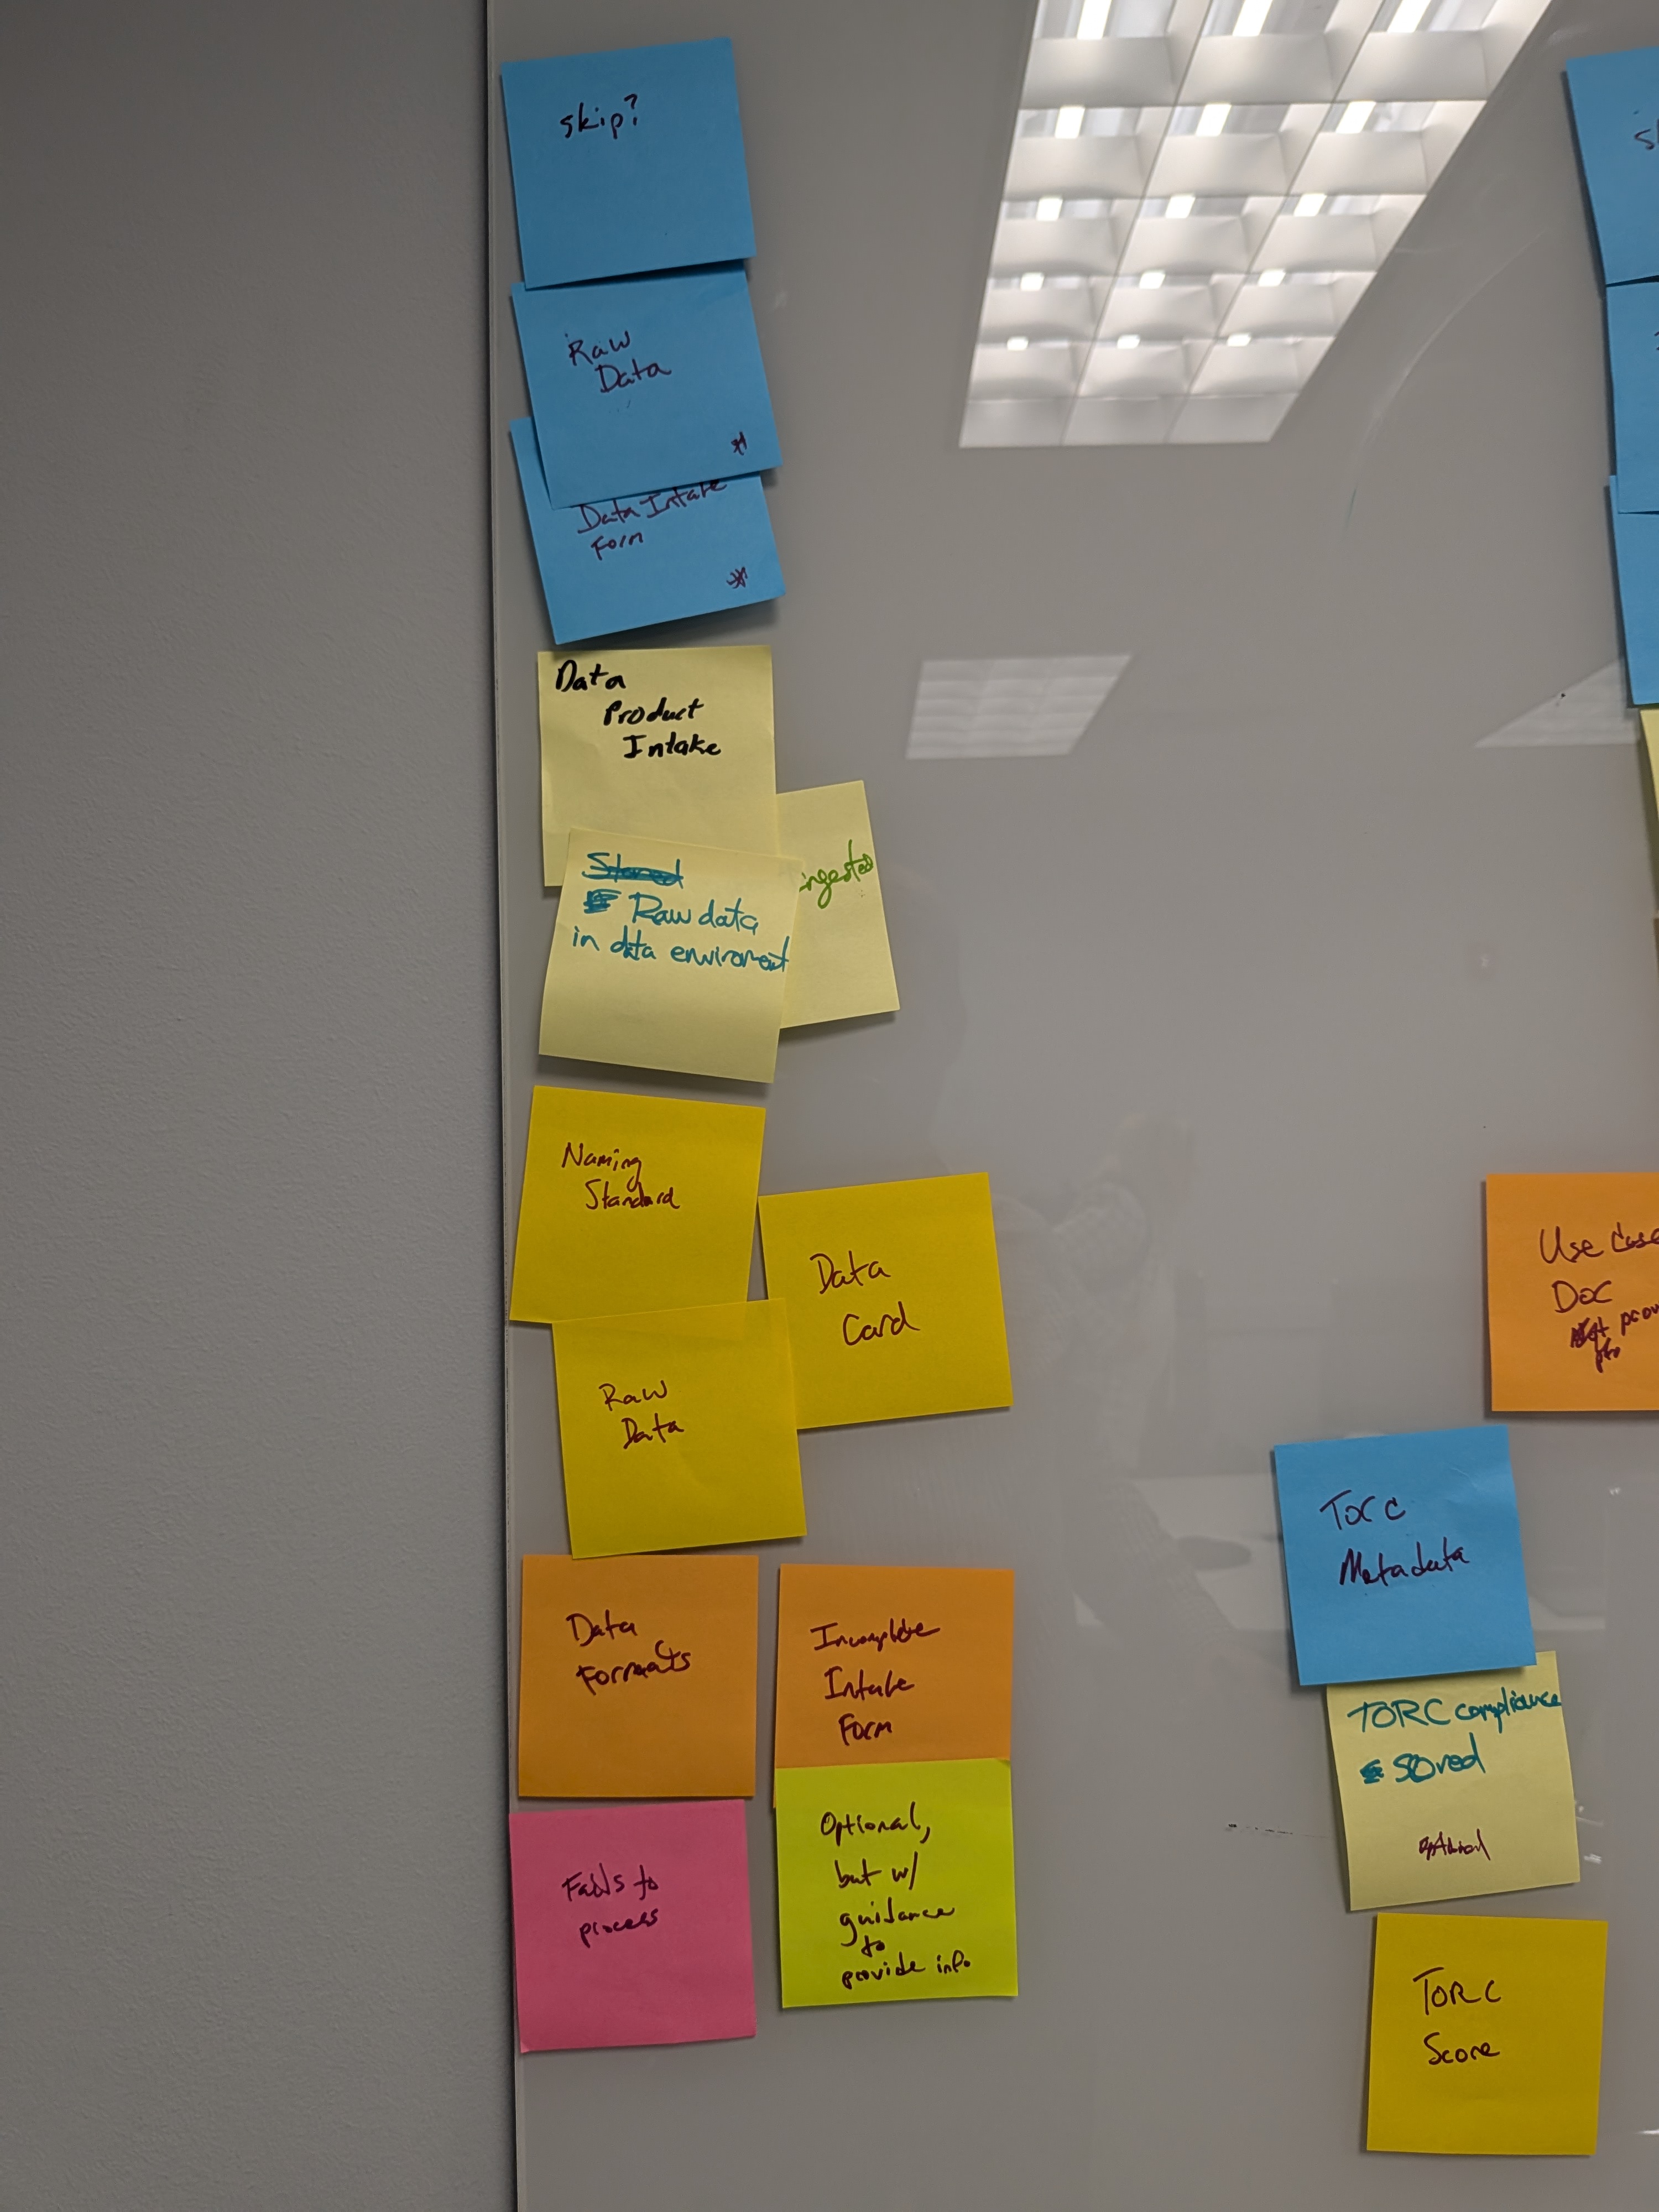 skip?
Raw
Data
*
Data Intake
Form
*
Data
Product
Intake
Raw data
in data enviroment
ingested
Naming
Standard
Data
Card
Raw
Data
Data
Formats
Incomplete
Intake
Form
Fails to
process
Optional,
but w/
guidance
to
provide info
Use Case
Doc
TORC
Metadata
TORC compliance
scored
optional
TORC
Score